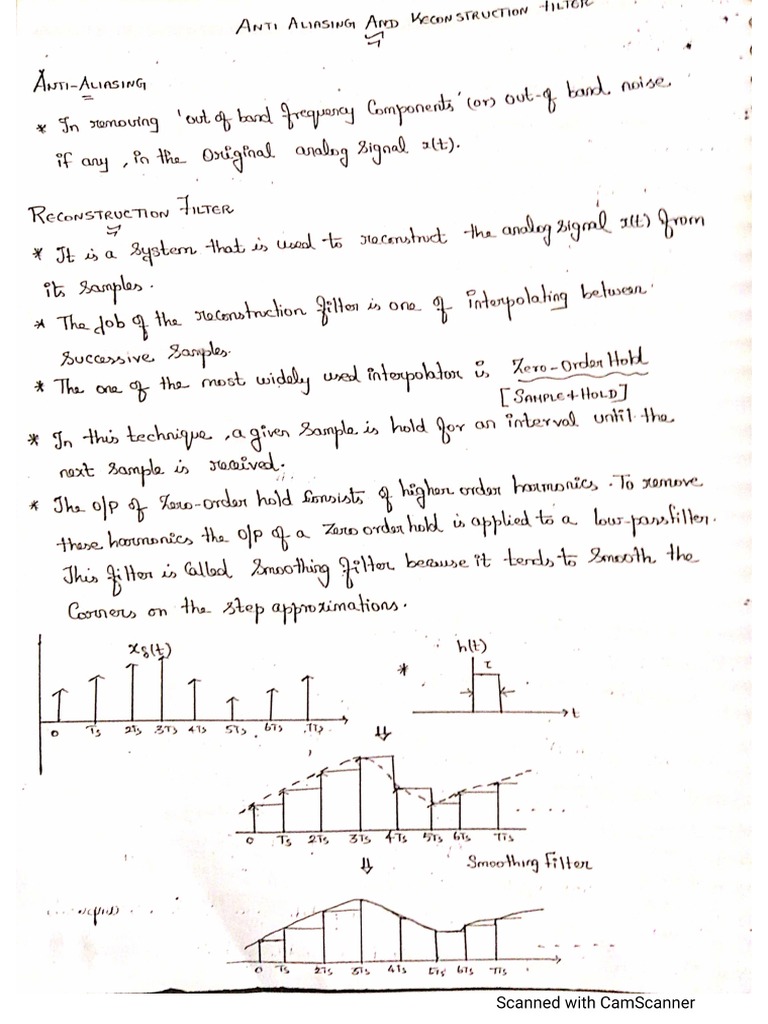 ANTI ALIASING AND RECONSTRUCTION FILTER
ANTI-ALIASING
* In removing 'out of band frequency Components' (or) out-of band noise
if any, in the Original analog Signal x(t).
RECONSTRUCTION FILTER
* It is a System that is used to reconstruct the analog signal x(t) from
its Samples.
* The Job of the reconstruction filter is one of interpolating between
Successive Samples.
* The one of the most widely used interpolator is Zero-Order Hold
[SAMPLE + HOLD]
* In this technique, a given Sample is hold for an interval until the
next Sample is received.
* The o/p of Zero-order hold Consists of higher order harmonics. To remove
these harmonics the o/p of a Zero order hold is applied to a low-passfilter.
This filter is Called Smoothing filter because it tends to Smooth the
Corners on the Step approximations.
xδ(t) * h(t)
τ
0 Ts 2Ts 3Ts 4Ts 5Ts 6Ts 7Ts t
⇓
0 Ts 2Ts 3Ts 4Ts 5Ts 6Ts 7Ts
⇓ Smoothing Filter
0 Ts 2Ts 3Ts 4Ts 5Ts 6Ts 7Ts
Scanned with CamScanner